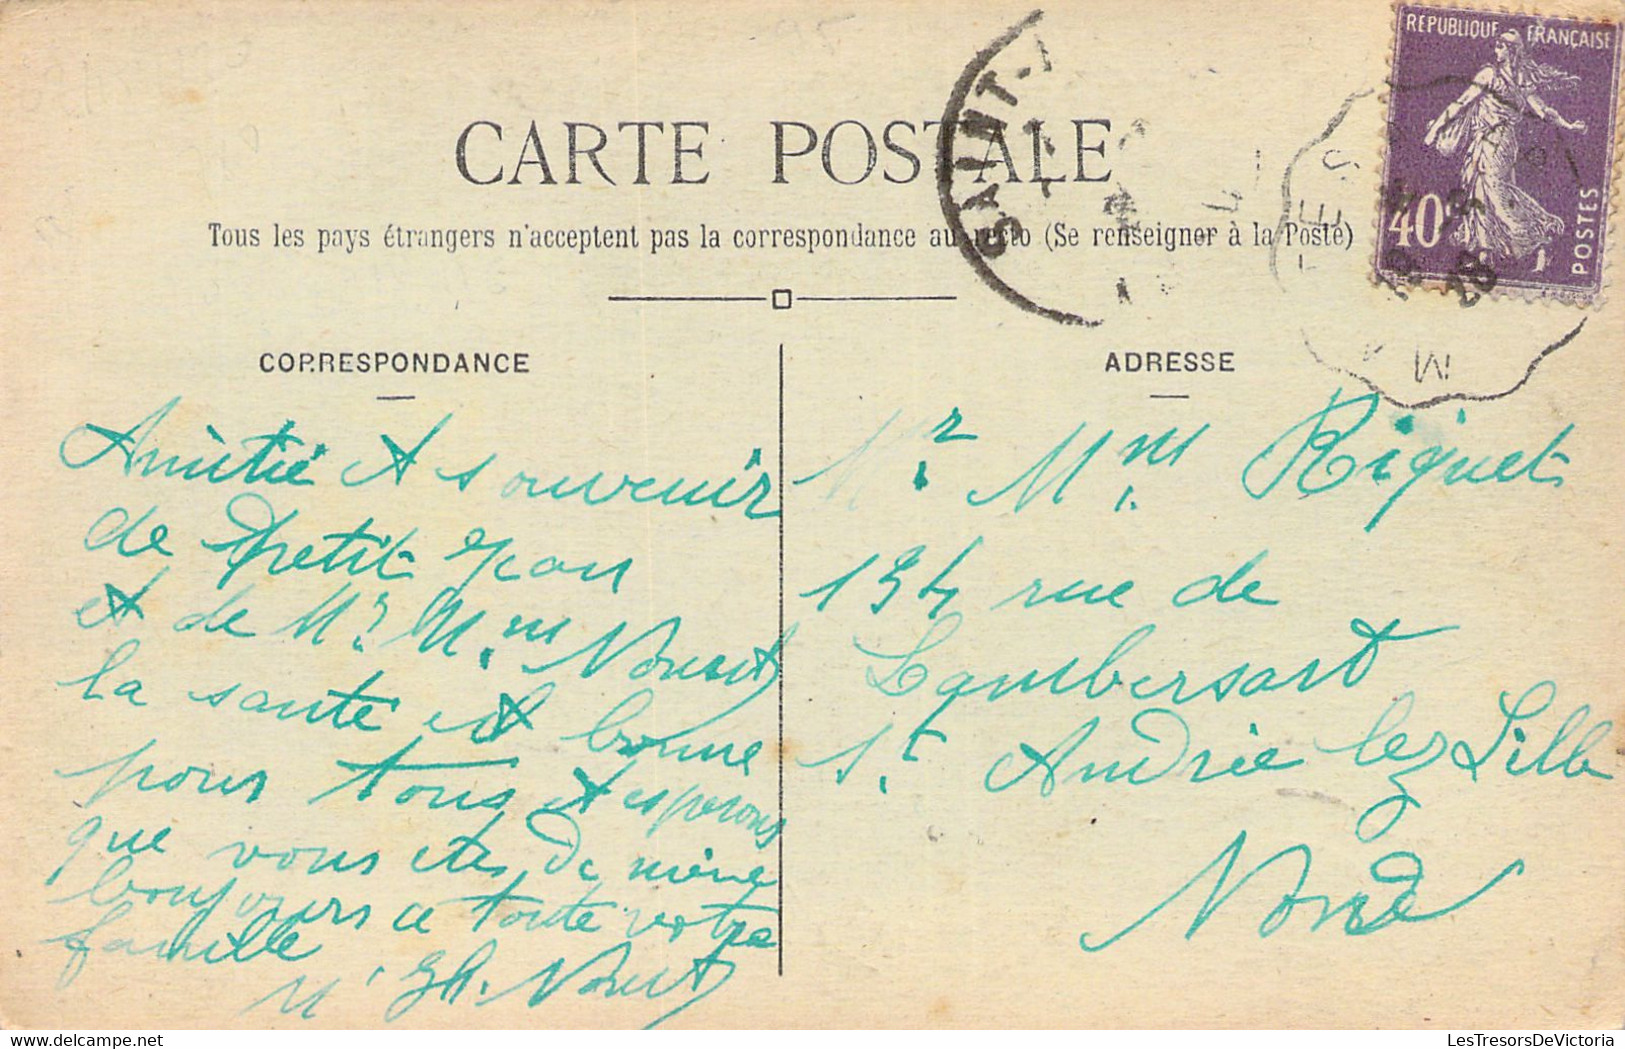 CARTE POSTALE
Tous les pays étrangers n'acceptent pas la correspondance au recto (Se renseigner à la Poste)
RÉPUBLIQUE FRANÇAISE
40c
POSTES
SAINT-
CORRESPONDANCE
Amitié et souvenir
de petit jean
et de Mr. M.me
la santé est bonne
pour tous et esperons
que vous etes de même
boujours a toute votre
famille
ADRESSE
Mr. M.me Riquet
134 rue de
Lambersart
St. Andrée lez Lille
Nord
LesTresorsDeVictoria.com